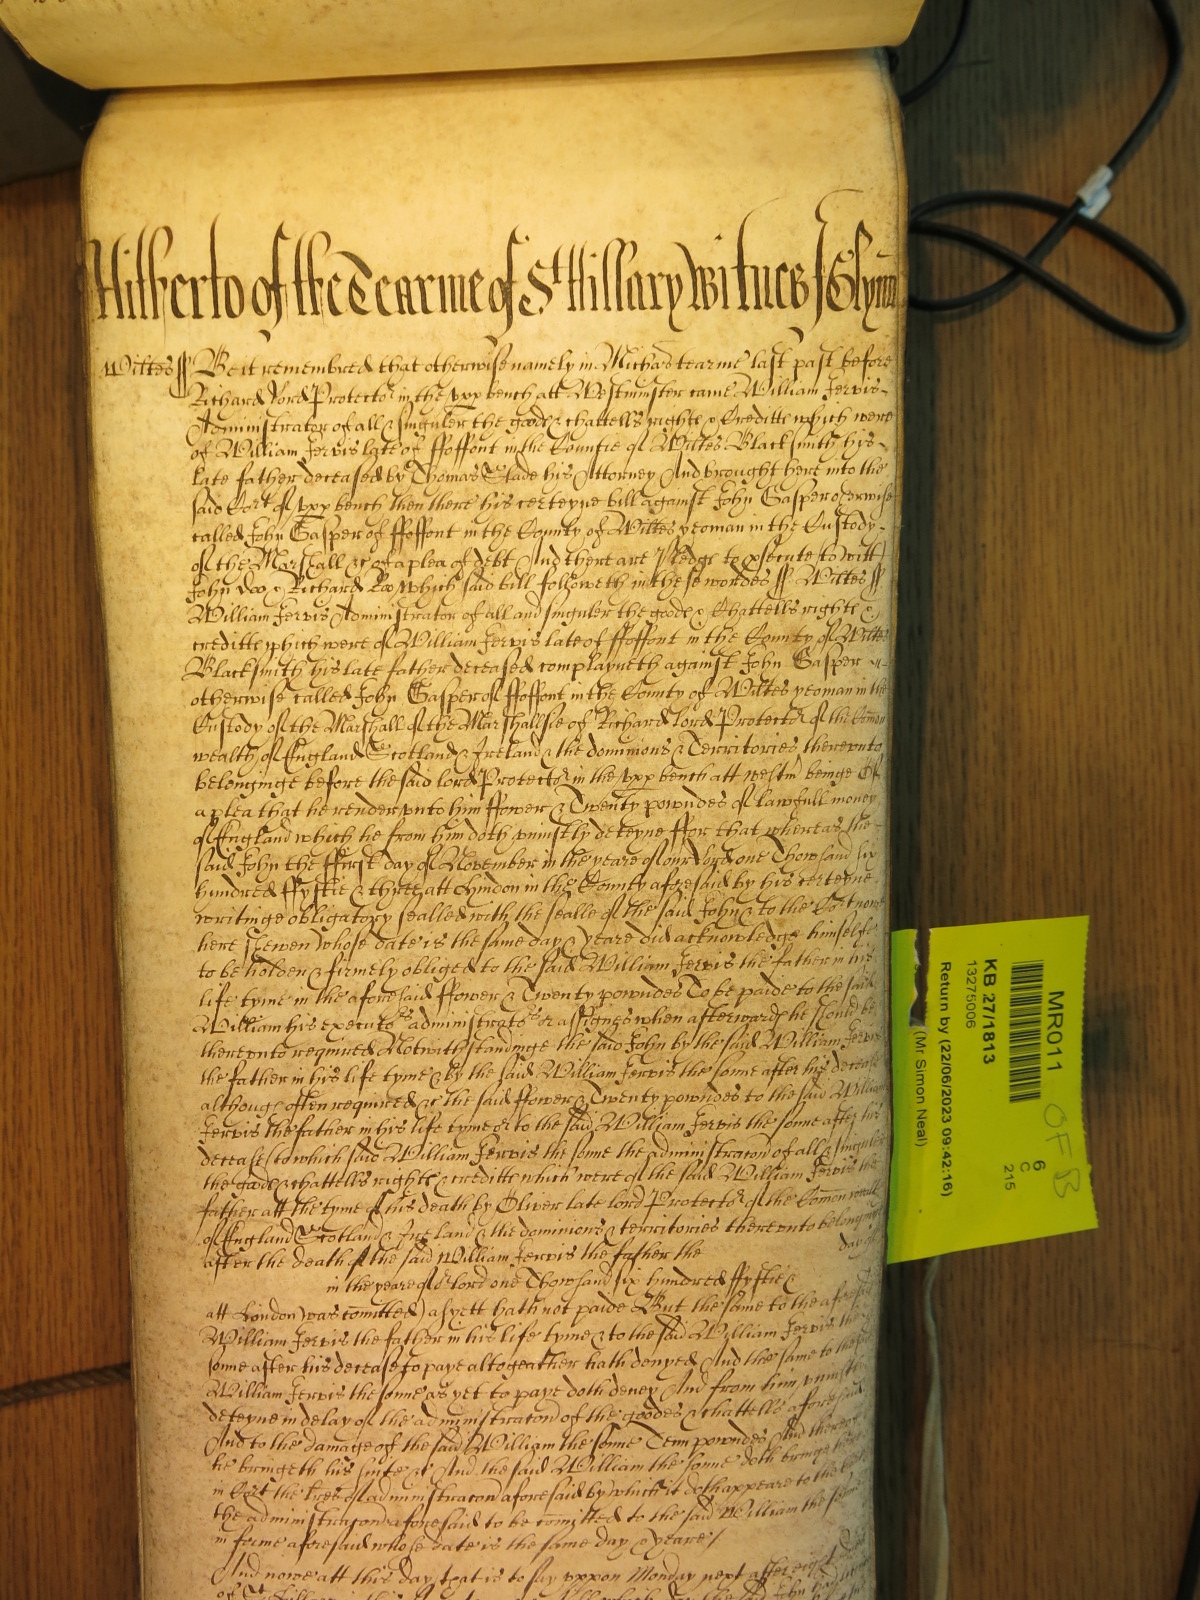 Hitherto of the Tearme of St Hillary Witnes J Glynn
Wiltes ss Be it remembred that otherwise namely in Michas tearme last past before
Richard lord Protector in the upp bench att Westminster came William Jervis
Administrator of all & singuler the goods chattells rights & Creditts which were
of William Jervis late of ffoffont in the Countie of Wiltes Blacksmith his
late father deceased by Thomas Slade his Attorney And brought here into the
said Cort of upp bench then there his certeyne bill against John Gasper otherwise
called John Gasper of ffoffont in the County of Wiltes yeoman in the Custody
of the Marshall &c of a plea of debt And there are Pledges to psecute to witt
John Doo & Richard Roo which said bill followeth in these wordes ss Wiltes ss
William Jervis Administrator of all and singuler the goods & Chattells rights &
creditts which were of William Jervis late of ffoffont in the County of Wiltes
Blacksmith his late father deceased complayneth against John Gasper
otherwise called John Gasper of ffoffont in the County of Wiltes yeoman in the
Custody of the Marshall of the Marshallsie of Richard lord Protector of the Comon
wealth of England Scotland & Ireland & the dominions & Territories thereunto
belonginge before the said lord Protector in the upp bench att westm beinge Of
a plea that he render unto him ffower & Twenty powndes of lawfull money
of England which he from him doth uniustly deteyne ffor that whereas the
said John the ffirst day of November in the yeare of our lord one Thowsand six
hundred ffyftie & three att Hindon in the County aforesaid by his certeyne
writinge obligatory sealled with the sealle of the said John & to the Cort nowe
here shewen whose date is the same day & yeare did acknowledge himselfe
to be holden & firmely obliged to the said William Jervis the father in his
life tyme in the aforesaid ffower & Twenty powndes To be paide to the said
William his executors administrators & assignes when afterwards he should be
thereunto required Notwithstandinge the said John by the said William Jervis
the father in his life tyme & by the said William Jervis the sonne after his decease
although often required &c the said ffower & Twenty powndes to the said William
Jervis the father in his life tyme or to the said William Jervis the sonne after his
decease (to which said William Jervis the sonne the administracon of all & singuler
the goods chattells rights & creditts which were of the said William Jervis the
father att the tyme of his death by Oliver late lord Protector of the Comon wealth
of England Scotland & Ireland & the dominions & territories thereunto belonginge
after the death of the said William Jervis the father the day of
in the yeare of or lord one Thowsand six hundred ffyftie &
att London was comitted) as yett hath not paide But the same to the aforesaid
William Jervis the father in his life tyme & to the said William Jervis the
sonne after his decease to paye altogeather hath denyed And the same to the said
William Jervis the sonne as yet to paye doth deney And from him uniustly
deteyne in delay of the administracon of the goodes & chattells aforesaid
And to the damage of the said William the sonne Tenn powndes And thereof
he bringeth his suite &c And the said William the sonne doth bringe here
in Cort the lres of administracon aforesaid by which it doth appeare to the Cort
the administracon aforesaid to be comitted to the said William the sonne
in forme aforesaid whose date is the same day & yeare
And nowe att this day that is to say uppon Monday next after eight dayes
MR011
KB 27/1813
13275006
Return by (22/06/2023 09:42:16)
(Mr Simon Neal)
6
C
215
OFB